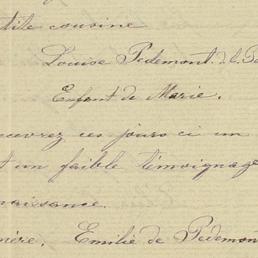 tite cousine
Louise Pedemont. de la
Enfant de Marie.
cevrez ces jours ci un
t un faible témoignage
naissance.
mère, Emilie de Pedemon